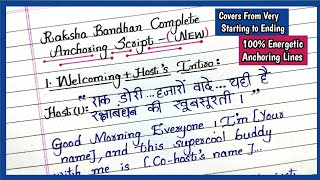 Raksha Bandhan Complete
Anchoring Script - (NEW)
Covers From Very
Starting to Ending
100% Energetic
Anchoring Lines
1. Welcoming + Host's Intro:
Host(1): "एक डोरी... हजारों वादे... यही है
रक्षाबंधन की खूबसूरती।"
Good Morning Everyone! I'm [Your
name], and this supercool buddy
with me is [Co-host's name]...